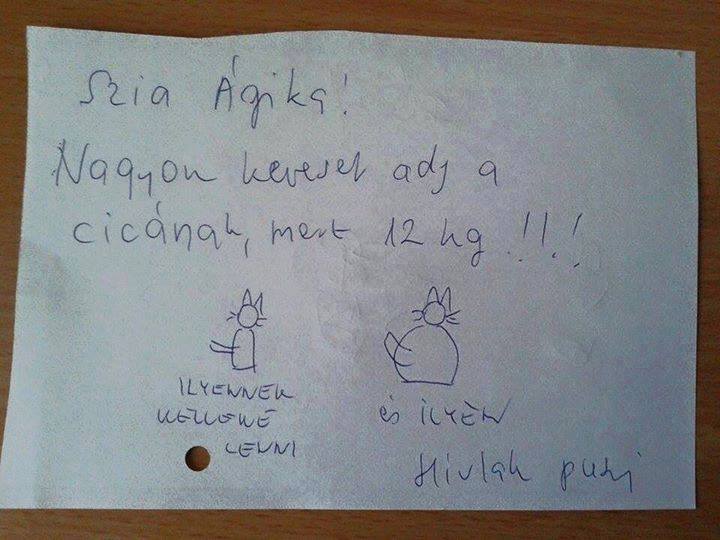 Szia Ágika!
Nagyon keveset adj a
cicának, mert 12 kg !!!!
ILYENNEK
KELLENE
LENNI
és ILYEN
Hívlak puszi